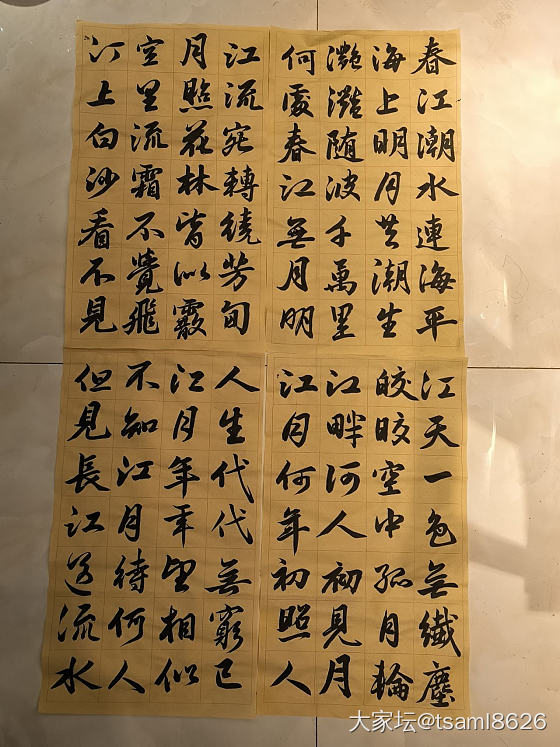 春江潮水連海平
海上明月共潮生
灧灧随波千萬里
何處春江無月明
江流宛轉繞芳甸
月照花林皆似霰
空里流霜不覺飛
汀上白沙看不見
江天一色無纖塵
皎皎空中孤月輪
江畔何人初見月
江月何年初照人
人生代代無窮已
江月年年望相似
不知江月待何人
但見長江送流水
大家坛@tsaml8626